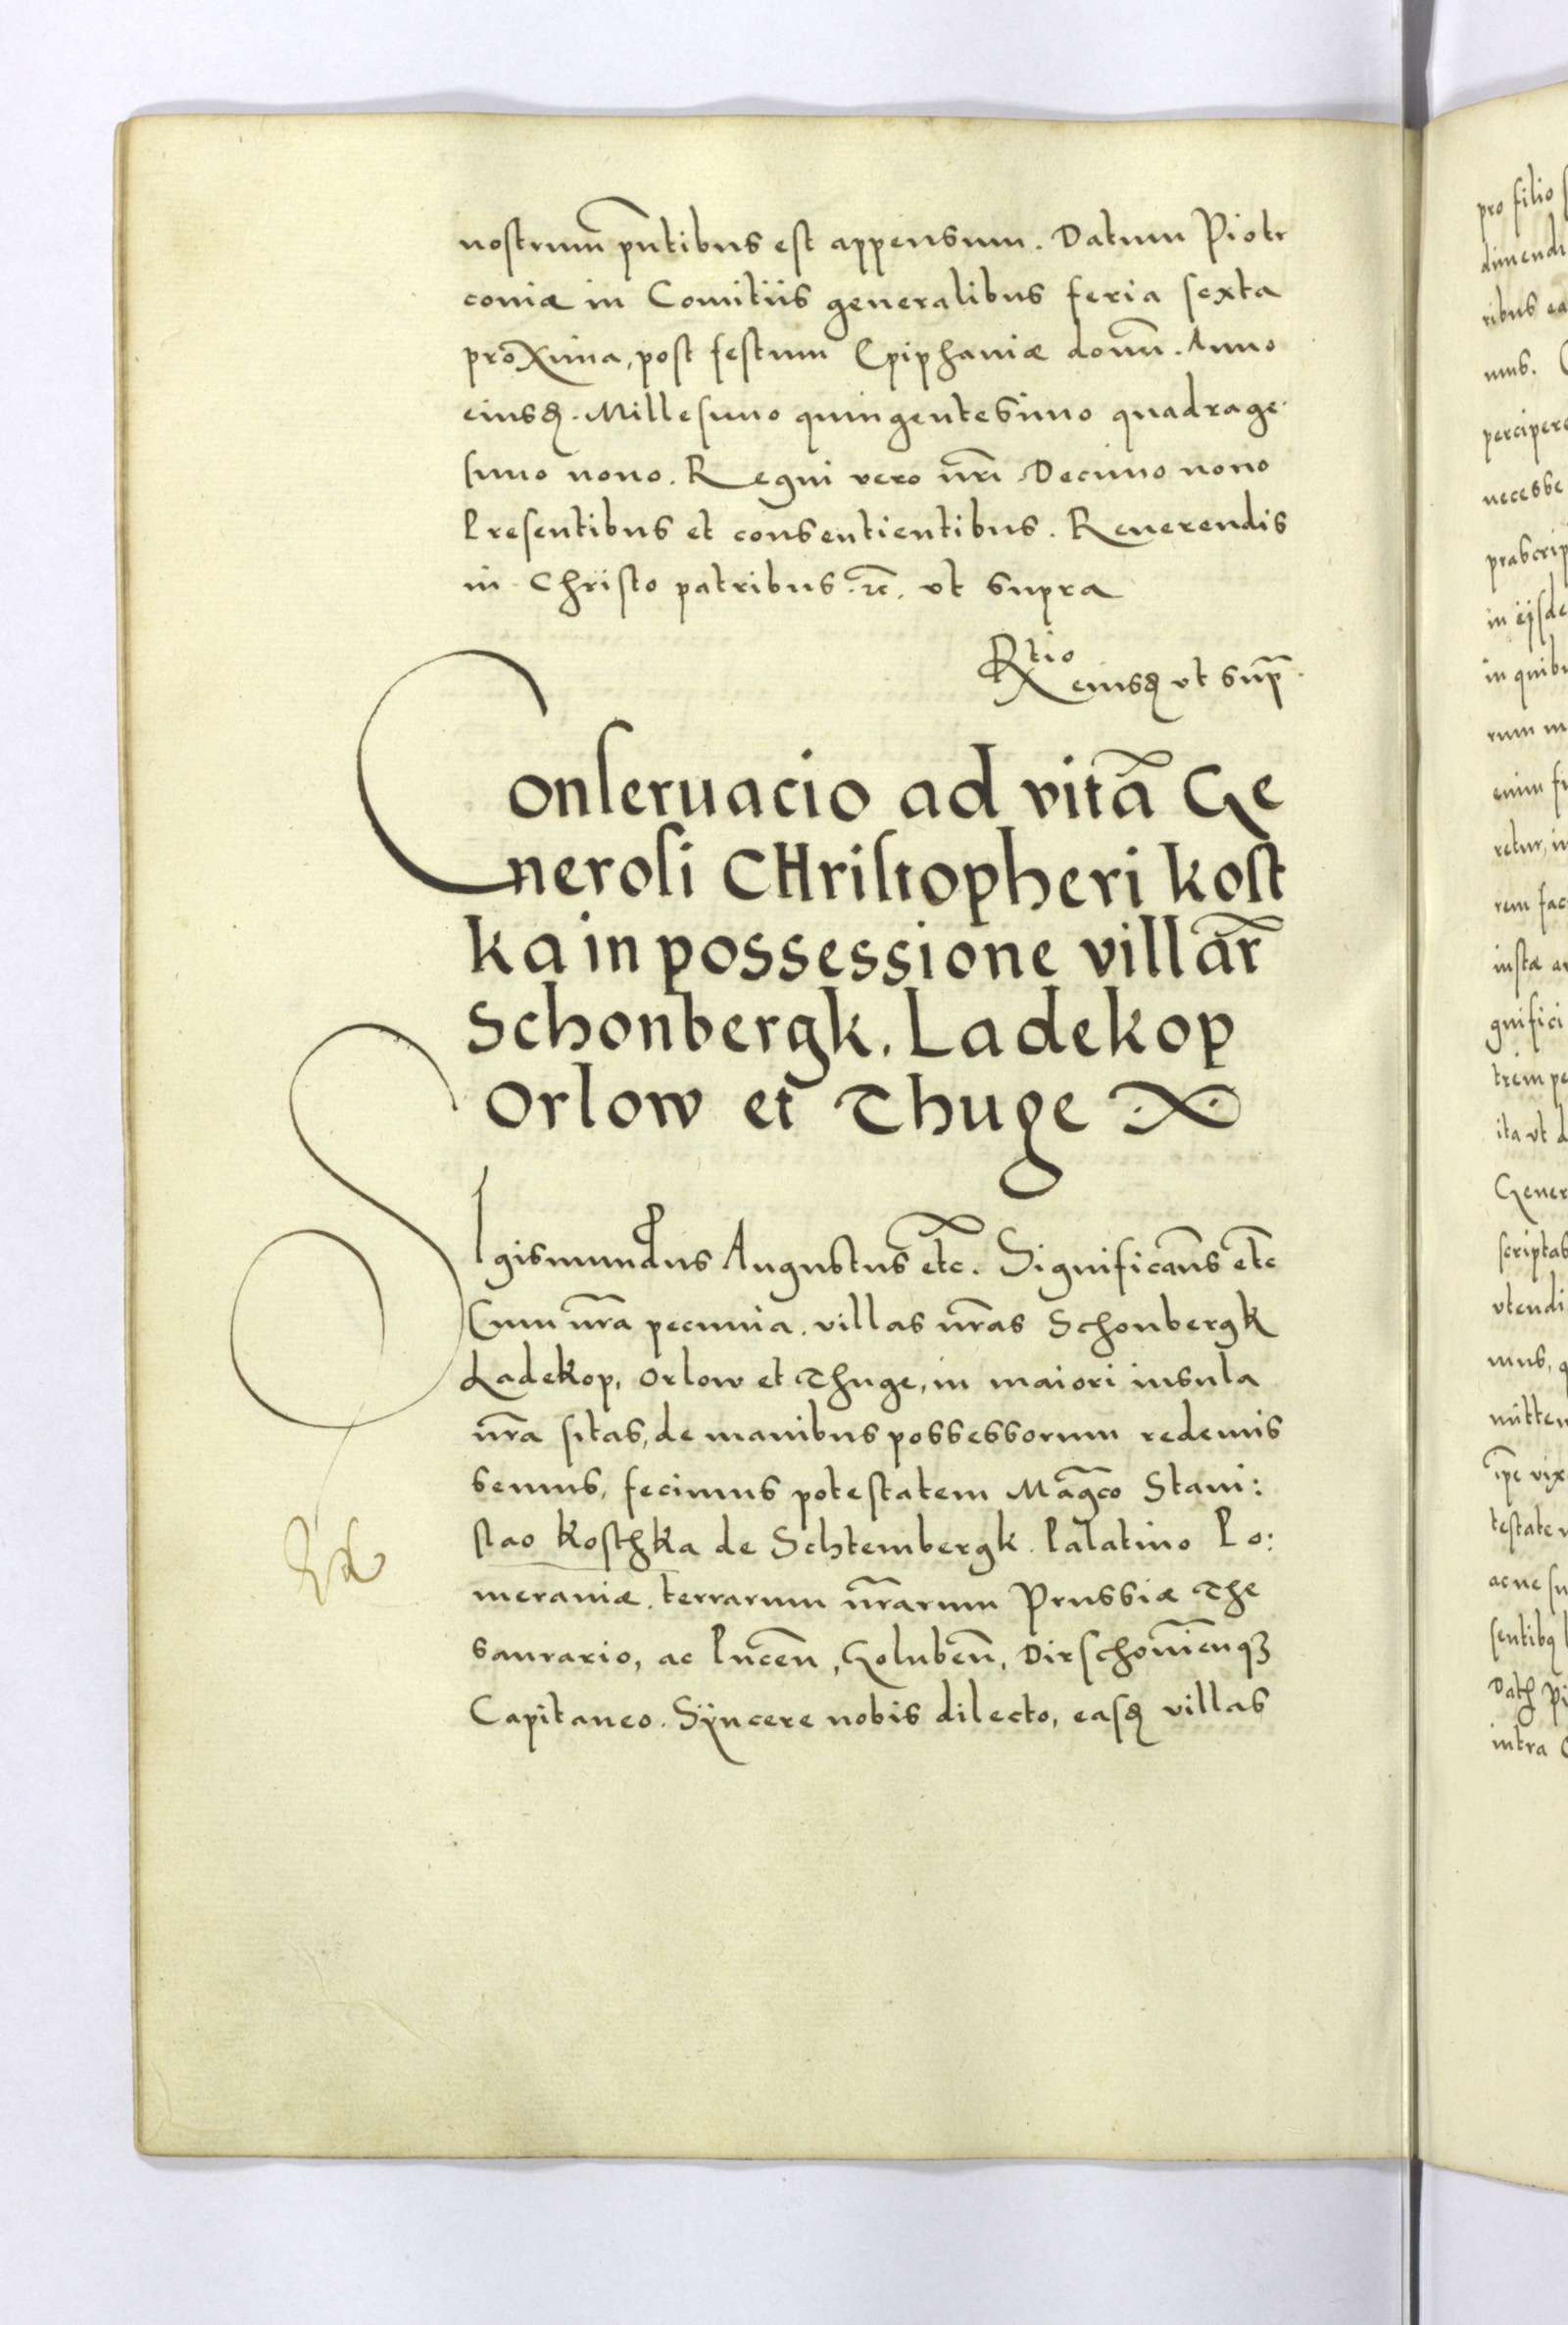 nostrum̄ pn̄tibus est appensum. Datum Piotr
coniæ in Comitiis generalibus feria sexta
proxima, post festum Epiphaniæ domn̄. Anno
eiusdꝫ. Millesimo quingentesimo quadrage
simo nono. Regni vero nr̄i Decimo nono
Presentibus et consentientibus. Reuerendis
in Christo patribus. ꝛc̄. vt supra
Rtio
eiusdꝫ vt sup̄
Conseruacio ad vitā Ge
nerosi CHristopheri kost
ka in possessione villar̄
Schonbergk. Ladekop
Orlow et Thuge
SIgismundus Augustus etc̄. Significam̄s etc̄
Cum nr̄a pecunia. villas nr̄as Schonbergk
Ladekop, Orlow et Thuge, in maiori insula
nr̄a sitas, de manibus possessorum redemis
semus, fecimus potestatem Maḡco Stani:
slao Kosthka de Schtembergk. Palatino Po:
meraniæ. terrarum nr̄arum Prussiæ The
saurario, ac Pucen̄, Goluben̄, Dirschouien̄qꝫ
Capitaneo. Sÿncere nobis dilecto, easdꝫ villas
pro filio
ribus ea
mus.
percipere
necesse
in quibu
rum m
enim fu
rem fac
gnifici
trem pe
ita vt
Gener
scriptas
vtendi
mus, q
mitten
ip̄e vix
testate
intra